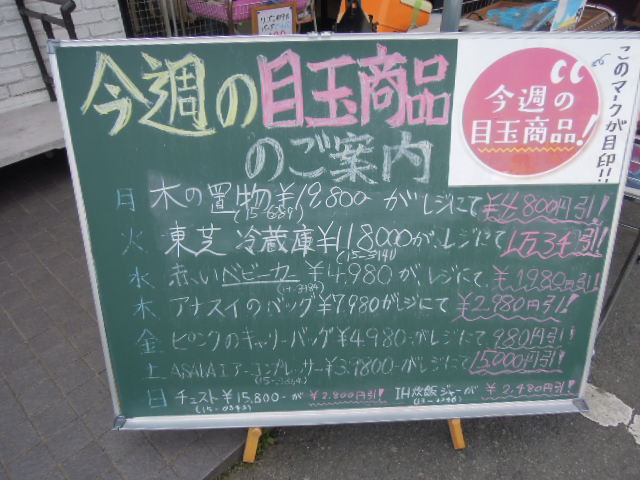 今週の目玉商品
のご案内
今週の
目玉商品!
このマークが目印!!
月 木の置物¥19,800 がレジにて ¥4,800円引!
火 東芝 冷蔵庫¥118000が、レジにて 1万34引!
(15-3141)
水 赤いベビーカー ¥4,980 が、レジにて ¥1,980円引!
木 アナスイのバッグ¥7,980がレジにて ¥2,980円引!
金 ピンクのキャリーバッグ¥4980-がレジにて 980円引!
土 ASAHIエアーコンプレッサー¥39800-がレジにて 15,000円引!
日 チェスト¥15,800-が ¥2,800円引! IH炊飯ジャーが ¥2,480円引!